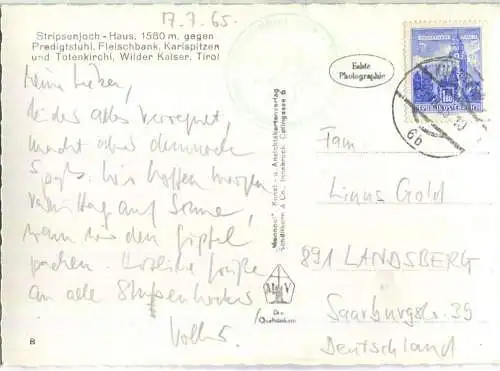 17.7.65.
Stripsenjoch - Haus, 1580 m, gegen
Predigtstuhl, Fleischbank, Karlspitzen
und Totenkirchl, Wilder Kaiser, Tirol
Meine Lieben,
leider alles verregnet
macht aber dennoch
Spaß. Wir hoffen morgen
Vormittag auf Sonne,
wenn wir den Gipfel
packen. Herzliche Grüße
an alle Stubenhocker
B
Echte
Photographie
Kunst- u. Ansichtskartenverlag
& Co., Innsbruck,
M V
Die
Qualitätskarte
REPUBLIK ÖSTERREICH
6b
Fam
Linus Gold
891 LANDSBERG
Saarburgstr. 39
Deutschland